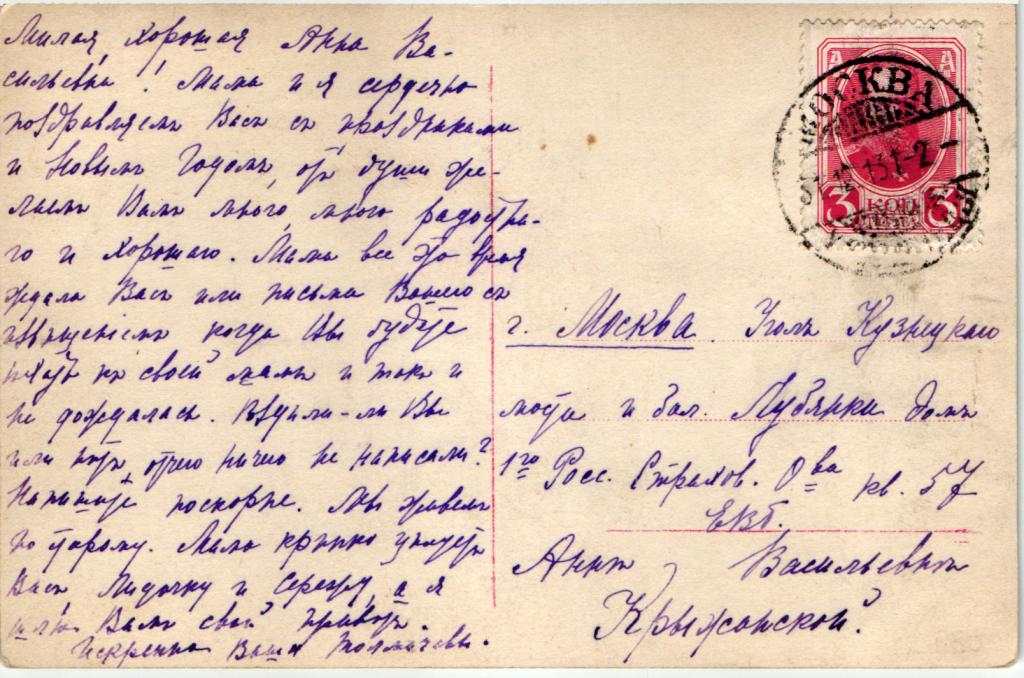 Милая, хорошая Анна Ва-
сильевна! Мама и я сердечно
поздравляемъ Васъ съ праздниками
и Новымъ Годомъ, отъ души же-
лаемъ Вамъ много, много радостна-
го и хорошаго. Мама все это время
ждала Васъ или письма Вашего съ
извѣщеніемъ когда Вы будете
ѣхать къ своей мамѣ и такъ и
не дождалась. Ѣздили-ли Вы
или нѣтъ, отчего ничего не написали?
Напишите поскорѣе. Мы живемъ
по старому. Мама крѣпко цѣлуетъ
Васъ Лидочку и Сережу, а я
шлю Вамъ свой приветъ.
Искренно Ваши Толмачевы.
МОСКВА
12.13
3 КОП 3
г. Москва. Уголъ Кузнецкаго
моста и Бол. Лубянки домъ
1го Росс. Страхов. О-ва кв. 57
ЕВБ.
Аннѣ Васильевнѣ
Крыжанской.